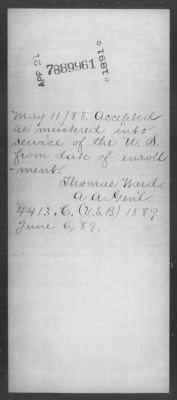 APR 21 7889961 1881
May 11/88. Accepted
as mustered into
service of the U. S.
from date of enroll
-ment.
Thomas Ward
A. A. Gen'l.
4413. C. (V.S.B) 1889.
June 6, 89.